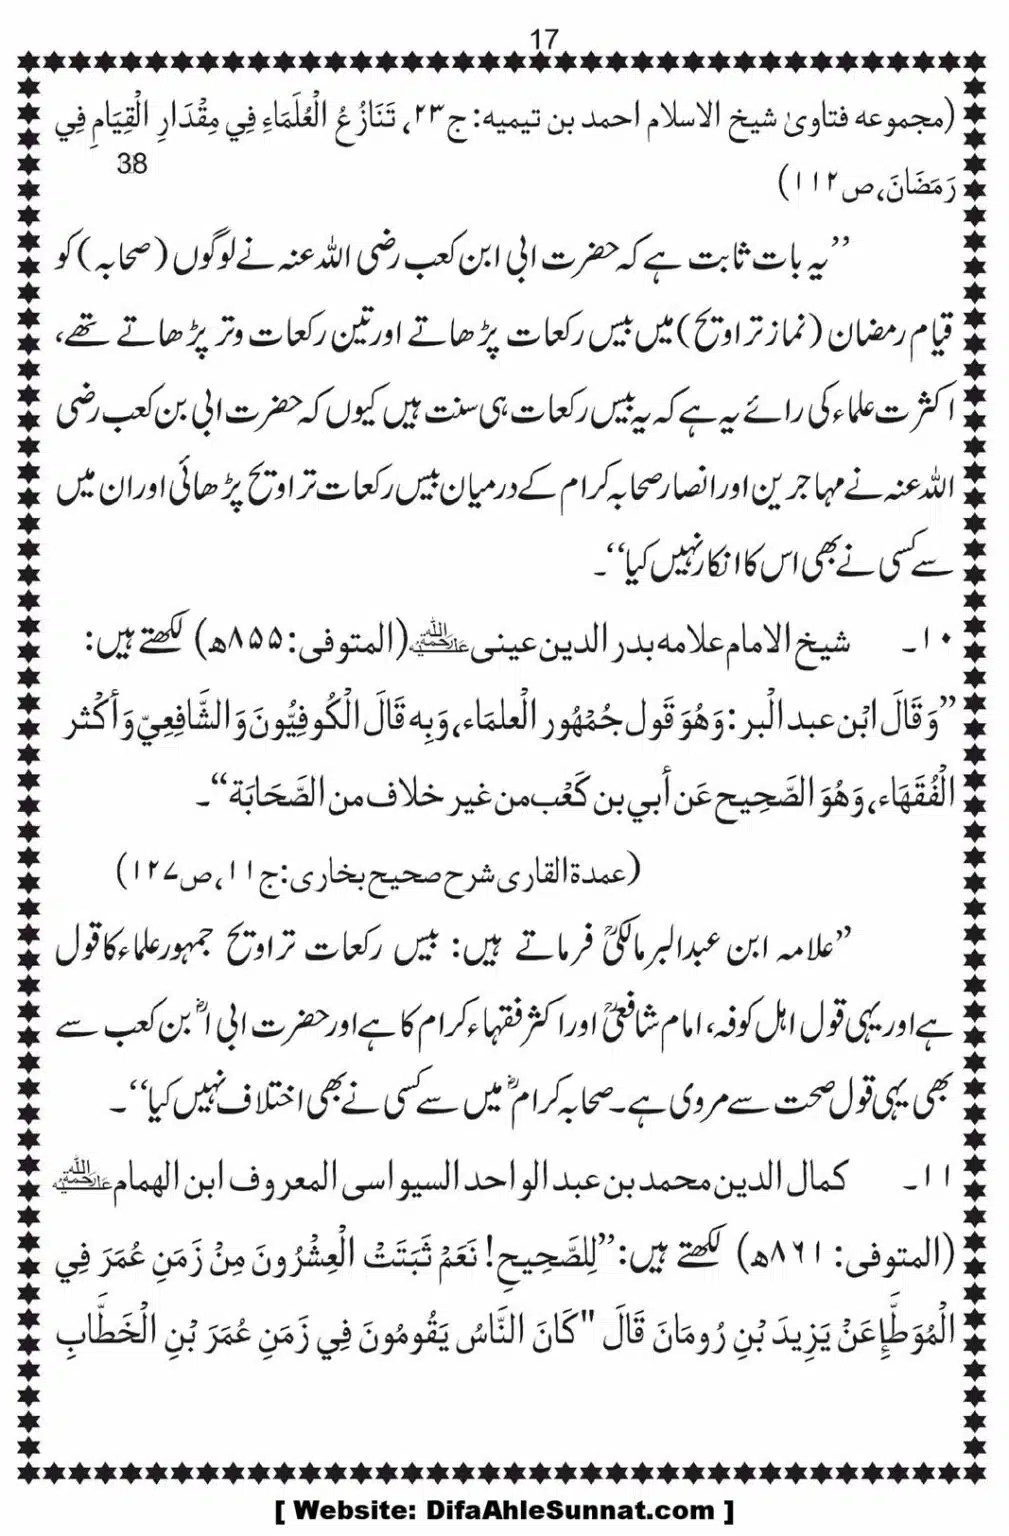 17
(مجموعه فتاویٰ شیخ الاسلام احمد بن تیمیه: ج۲۳، تَنَازُعُ الْعُلَمَاءِ فِي مِقْدَارِ الْقِيَامِ فِي
38
رَمَضَانَ، ص۱۱۲)
’’یہ بات ثابت ہے کہ حضرت ابی ابن کعب رضی اللہ عنہ نے لوگوں (صحابہ) کو
قیام رمضان (نماز تراویح) میں بیس رکعات پڑھاتے اور تین رکعات وتر پڑھاتے تھے،
اکثرت علماء کی رائے یہ ہے کہ یہ بیس رکعات ہی سنت ہیں کیوں کہ حضرت ابی بن کعب رضی
اللہ عنہ نے مہاجرین اور انصار صحابہ کرام کے درمیان بیس رکعات تراویح پڑھائی اور ان میں
سے کسی نے بھی اس کا انکار نہیں کیا‘‘۔
۱۰۔ شیخ الامام علامه بدر الدین عینی رحمۃ اللہ علیہ (المتوفی: ۸۵۵ھ) لکھتے ہیں:
’’وَقَالَ ابْن عبد الْبر: وَهُوَ قَول جُمْهُور الْعلمَاء، وَبِه قَالَ الْكُوفِيُّونَ وَالشَّافِعِيّ وَأَكْثر
الْفُقَهَاء، وَهُوَ الصَّحِيح عَن أبي بن كَعْب من غير خلاف من الصَّحَابَة‘‘۔
(عمدة القاری شرح صحیح بخاری: ج۱۱، ص۱۲۷)
’’علامہ ابن عبدالبر مالکیؒ فرماتے ہیں: بیس رکعات تراویح جمہور علماء کا قول
ہے اور یہی قول اہل کوفہ، امام شافعیؒ اور اکثر فقہاء کرام کا ہے اور حضرت ابی اؓ بن کعب سے
بھی یہی قول صحت سے مروی ہے۔ صحابہ کرامؓ میں سے کسی نے بھی اختلاف نہیں کیا‘‘۔
۱۱۔ کمال الدین محمد بن عبد الواحد السیواسی المعروف ابن الهمام رحمۃ اللہ علیہ
(المتوفی: ۸۶۱ھ) لکھتے ہیں: ’’لِلصَّحِيحِ! نَعَمْ ثَبَتَتْ الْعِشْرُونَ مِنْ زَمَنِ عُمَرَ فِي
الْمُوَطَّإِ عَنْ يَزِيدَ بْنِ رُومَانَ قَالَ "كَانَ النَّاسُ يَقُومُونَ فِي زَمَنِ عُمَرَ بْنِ الْخَطَّابِ
[ Website: DifaAhleSunnat.com ]